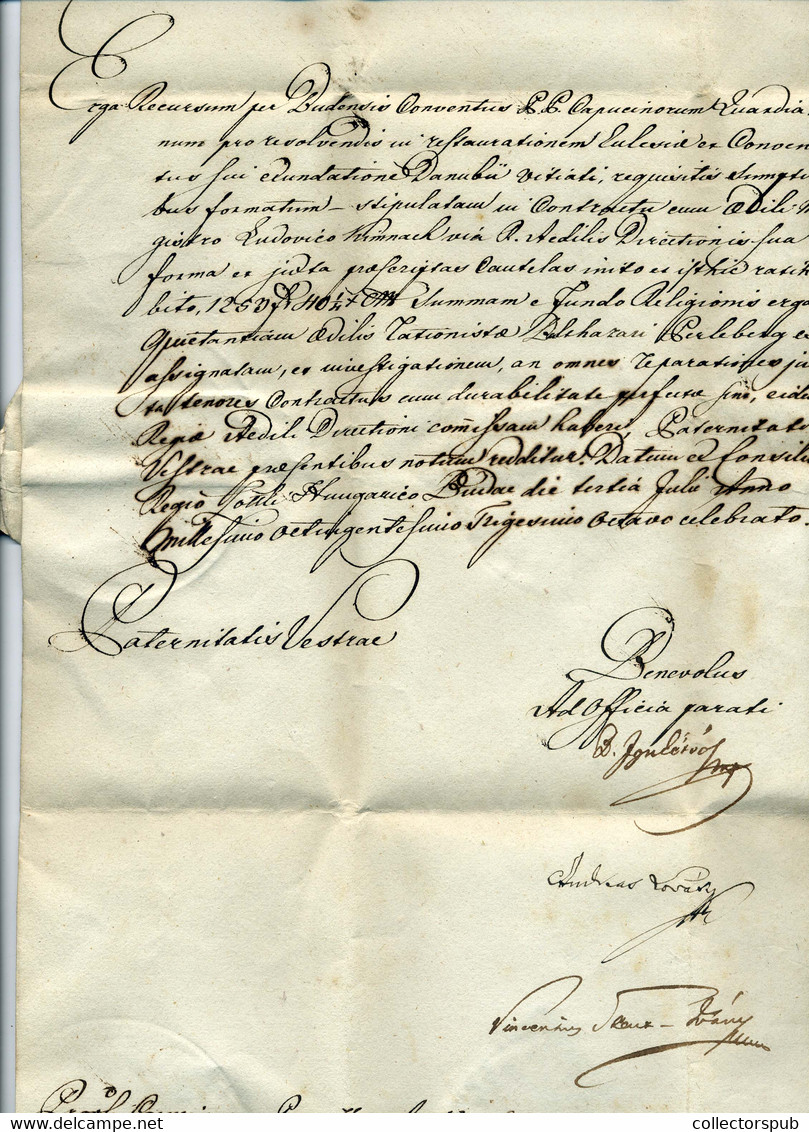 Erga Recursum per Budensis Conventus P.P. Capucinorum Quardia
num pro resolvendis in restaurationem Eclesiæ et Conven
tus sui exundatione Danubii vitiati, requisitis Sumpti
bus formatum – stipulatam in Contractu cum Ædili M
gistro Ludovico Kimnach via R. Aedilis Directionis sua
forma et juxta præscriptas Cautelas inito et isthic ratih
bito, 1250 f 40 1/4 Summam e Fundo Religionis erga
Quietantiam Ædilis Rationistæ Balthazari Perleberg e
assignatam, et investigationem, an omnes reparationes ju
ta tenores Contractus cum durabilitate perfectæ sint, eid
Regiæ Aedili Directioni comissam haberi, Paternitat
Vestrae præsentibus notum redditur. Datum ex Consili
Regio Hungarico Budae die tertia Julii Anno
Millesimo octingentesimo Trigesimo octavo celebrato.
Paternitatis Vestrae
Benevolus
Ad Officia parati
B.
Andreas Kovács
Vincentius
collectorspub